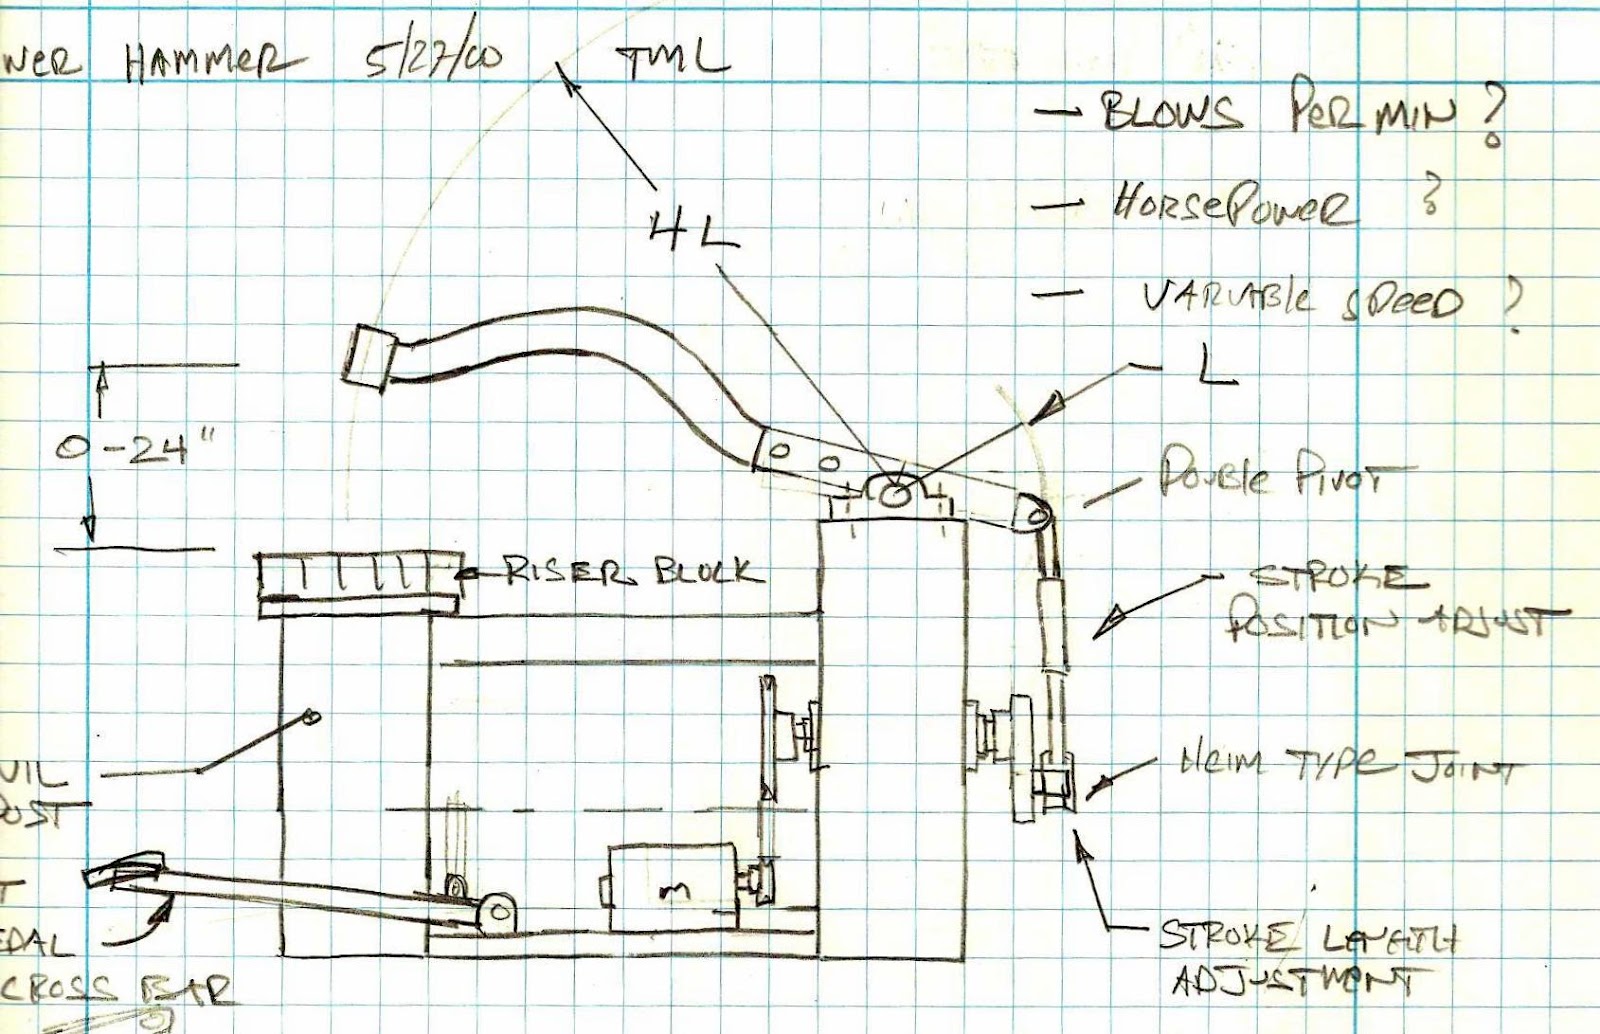 WER HAMMER 5/27/00 TML
- BLOWS PER MIN ?
- HORSEPOWER ?
- VARIABLE SPEED ?
4L
L
0-24"
DOUBLE PIVOT
RISER BLOCK
STROKE
POSITION ADJUST
HEIM TYPE JOINT
VIL
POST
M
T
EDAL
CROSS BAR
STROKE LENGTH
ADJUSTMENT